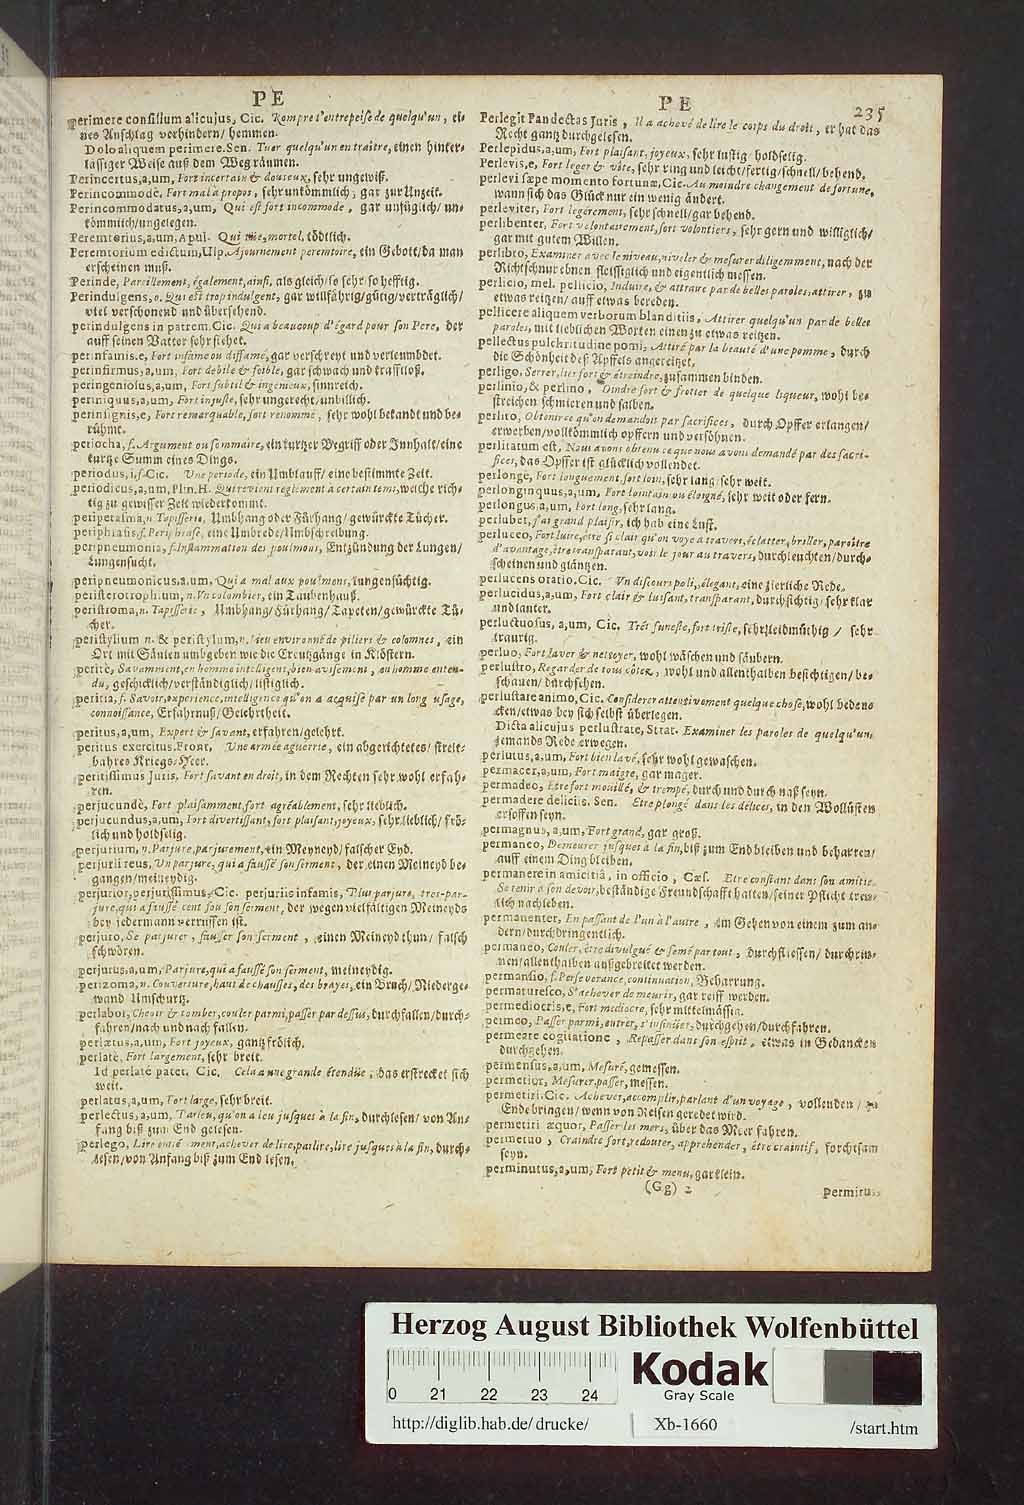 PE
perimere consilium alicujus, Cic. Rompre l'entrepeise de quelqu'un, ei-
nes Anschlag verhindern/ hemmen.
Dolo aliquem perimere. Sen. Tuer quelqu'un en traître, einen hinter-
lässiger Weise auß dem Weg räumen.
Perincertus, a, um, Fort incertain & douteux, sehr ungewiß.
Perincommodè, Fort mal à propos, sehr unkömmlich; gar zur Unzeit.
Perincommodatus, a, um, Qui est fort incommode, gar unfüglich/ un-
kömmlich/ ungelegen.
Peremtorius, a, um, Apul. Qui tüe, mortel, tödtlich.
Peremtorium edictum, Ulp. Ajournement peremtoire, ein Gebott/ da man
erscheinen muß.
Perinde, Pareillement, également, ainsi, als gleich/ so sehr/ so hefftig.
Perindulgens, o. Qui est trop indulgent, gar willfährig/ gütig/ verträglich/
viel verschonend und übersehend.
perindulgens in patrem, Cic. Qui a beaucoup d'égard pour son Pere, der
auff seinen Vatter sehr siehet.
perinfamis, e, Fort infame ou diffamé, gar verschreyt und verleumbdet.
perinfirmus, a, um, Fort debile & foible, gar schwach und krafftloß.
peringeniosus, a, um, Fort subtil & ingenieux, sinnreich.
periniquus, a, um, Fort injuste, sehr ungerecht/ unbillich.
perinsignis, e, Fort remarquable, fort renommé, sehr wohl bekandt und be-
rühmt.
periocha, f. Argument ou sommaire, ein kurtzer Begriff oder Innhalt/ eine
kurtze Summ eines Dings.
periodus, i, f. Cic. Une periode, ein Umblauff/ eine bestimmte Zeit.
periodicus, a, um, Plin. H. Qui revient reglement à certain tems, welche rich-
tig zu gewisser Zeit wiederkommt.
peripetasma, n. Tapisserie, Umbhang oder Fürhang/ gewürckte Tücher.
periphrasis, f. Periphrase, eine Umbrede/ Umbschreibung.
peripneumonia, f. Inflammation des poulmons, Entzündung der Lungen/
Lungensucht.
peripneumonicus, a, um, Qui a mal aux poulmons, lungensüchtig.
peristerotrophium, n. Un colombier, ein Taubenhauß.
peristroma, n. Tapisserie, Umbhang/ Fürhang/ Tapeten/ gewürckte Tü-
cher.
peristylium n. & peristylum, n. Lieu environné de piliers & colomnes, ein
Ort mit Säulen umbgeben wie die Creutzgänge in Klöstern.
peritè, Savamment, en homme intelligent, bien-avisement, en homme enten-
du, geschicklich/ verständiglich/ listiglich.
peritia, f. Savoir, experience, intelligence qu'on a acquise par un long usage,
connoissance, Erfahrnuß/ Gelehrtheit.
peritus, a, um, Expert & savant, erfahren/ gelehrt.
peritus exercitus, Front. Une armée aguerrie, ein abgerichtetes/ streit-
bahres Kriegs-Heer.
peritissimus Juris, Fort savant en droit, in dem Rechten sehr wohl erfah-
ren.
perjucundè, Fort plaisamment, fort agréablement, sehr lieblich.
perjucundus, a, um, Fort divertissant, fort plaisant, joyeux, sehr lieblich/ frö-
lich und holdselig.
perjurium, n. Parjure, parjurement, ein Meyneyd/ falscher Eyd.
perjurii reus, Un parjure, qui a faussé son serment, der einen Meineyd be-
gangen/ meineydig.
perjurior, perjurissimus, Cic. perjuriis infamis, Plus parjure, tres-par-
jure, qui a faussé cent fou son serment, der wegen vielfältigen Meineyds
bey jedermann verruffen ist.
perjuro, Se parjurer, fausser son serment, einen Meineyd thun/ falsch
schwören.
perjurus, a, um, Parjure, qui a faussé son serment, meineydig.
perizoma, n. Couverture, haut de chausses, des brayes, ein Bruch/ Niederge-
wand Umschurtz.
perlabor, Cheoir & tomber, couler parmi, passer par dessus, durchfallen/ durch-
fahren/ nach und nach fallen.
perlætus, a, um, Fort joyeux, gantz frölich.
perlatè, Fort largement, sehr breit.
Id perlatè patet. Cic. Cela a une grande étendüe, das erstrecket sich
weit.
perlatus, a, um, Fort large, sehr breit.
perlectus, a, um, Tarleu, qu'on a leu jusques à la fin, durchlesen/ von An-
fang biß zum End gelesen.
perlego, Lire entiérement, achever de lire, parlire, lire jusques à la fin, durch-
lesen/ von Anfang biß zum End lesen.
PE
235
Perlegit Pandectas Juris, Il a achevé de lire le corps du droit, er hat das
Recht gantz durchgelesen.
Perlepidus, a, um, Fort plaisant, joyeux, sehr lustig/ holdselig.
Perlevis, e, Fort leger & vîte, sehr ring und leicht/ fertig/ schnell/ behend.
perlevi sæpe momento fortunæ, Cic. Au moindre changement de fortune,
wann sich das Glück nur ein wenig ändert.
perleviter, Fort legérement, sehr schnell/ gar behend.
perlibenter, Fort volontairement, fort volontiers, sehr gern und williglich/
gar mit gutem Willen.
perlibro, Examiner avec le niveau, niveler & mesurer diligemment, nach der
Richtschnur ebnen fleissiglich und eigentlich messen.
perlicio, mel. pellicio, Induire, & attraire par de belles paroles, attirer, zu
etwas reitzen/ auff etwas bereden.
pellicere aliquem verborum blanditiis, Attirer quelqu'un par de belles
paroles, mit lieblichen Worten einen zu etwas reitzen.
pellectus pulchritudine pomi, Attiré par la beauté d'une pomme, durch
die Schönheit deß Apffels angereitzet.
perligo, Serrer, lier fort & étreindre, zusammen binden.
perlinio, & perlino, Oindre fort & frotter de quelque liqueur, wohl be-
streichen schmieren und salben.
perlito, Obtenir ce qu'on demandoit par sacrifices, durch Opffer erlangen/
erwerben/ vollkömmlich opffern und versöhnen.
perlitatum est, Nous avons obtenu ce que nous avons demandé par des sacri-
fices, das Opffer ist glücklich vollendet.
perlongè, Fort longuement, fort loin, sehr lang/ sehr weit.
perlonginquus, a, um, Fort lointain ou éloigné, sehr weit oder fern.
perlongus, a, um, Fort long, sehr lang.
perlubet, J'ai grand plaisir, ich hab eine Lust.
perluceo, Fort luire, être si clair qu'on voye à travers, éclatter, briller, paroître
d'avantage, être transparant, voir le jour au travers, durchleuchten/ durch-
scheinen und gläntzen.
perlucens oratio. Cic. Un discours poli, élegant, eine zierliche Rede.
perlucidus, a, um, Fort clair & luisant, transparant, durchsichtig/ sehr klar
und lauter.
perluctuosus, a, um, Cic. Trés funeste, fort triste, sehr leidmüthig/ sehr
traurig.
perluo, Fort laver & netteyer, wohl wäschen und säubern.
perlustro, Regarder de tous côtez, wohl und allenthalben besichtigen/ be-
schauen/ durchsehen.
perlustrare animo, Cic. Considerer attentivement quelque chose, wohl beden-
cken/ etwas bey sich selbst überlegen.
Dicta alicujus perlustrare, Strat. Examiner les paroles de quelqu'un,
jemands Rede erwegen.
perlutus, a, um, Fort bien lavé, sehr wohl gewaschen.
permacer, a, um, Fort maigre, gar mager.
permadeo, Etre fort mouillé, & trempé, durch und durch naß seyn.
permadere deliciis, Sen. Etre plongé dans les délices, in den Wollüsten
ersoffen seyn.
permagnus, a, um, Fort grand, gar groß.
permaneo, Demeurer jusques à la fin, biß zum End bleiben und beharren/
auff einem Ding bleiben.
permanere in amicitiâ, in officio, Cæs. Etre constant dans son amitie.
Se tenir à son devoir, beständige Freundschafft halten/ seiner Pflicht treu-
lich nachleben.
permananter, En passant de l'un à l'autre, im Gehen von einem zum an-
dern/ durchdringentlich.
permaneo, Couler, être divulgué & semé par tout, durchfliessen/ durchrin-
nen/ allenthalben außgebreitet werden.
permansio, f. Perseverance, continuation, Beharrung.
permaturesco, S'achever de meurir, gar reiff werden.
permediocris, e, Fort mediocre, sehr mittelmässig.
permeo, Passer parmi, entrer, s'insinüer, durchgehen/ durchfahren.
permeare cogitatione, Repasser dans son esprit, etwas in Gedancken
durchgehen.
permensus, a, um, Mesuré, gemessen.
permetior, Mesurer, passer, messen.
permetiri. Cic. Achever, accomplir, parlant d'un voyage, vollenden/ zu
Ende bringen/ wenn von Reisen geredet wird.
permetiri æquor, Passer les mers, über das Meer fahren.
permetuo, Craindre fort, redouter, apprehender, être craintif, forchtsam
seyn.
perminutus, a, um, Fort petit & menu, gar klein.
(Gg) 2
Permirus,
Herzog August Bibliothek Wolfenbüttel
Kodak
Gray Scale
0 21 22 23 24
http://diglib.hab.de/ drucke/
Xb-1660
/start.htm